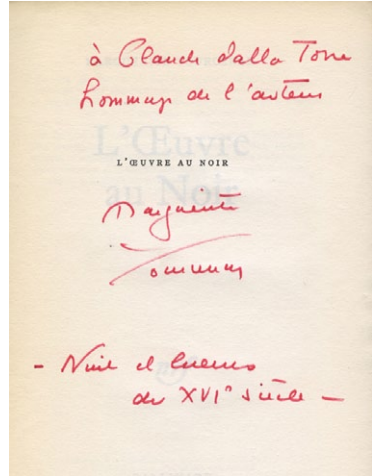 à Claude Dalla Torre
hommage de l'auteur
L'Œuvre
L'ŒUVRE AU NOIR
au Noir
Marguerite
Yourcenar
— Nuit et lueurs
du XVIe siècle —
nrf